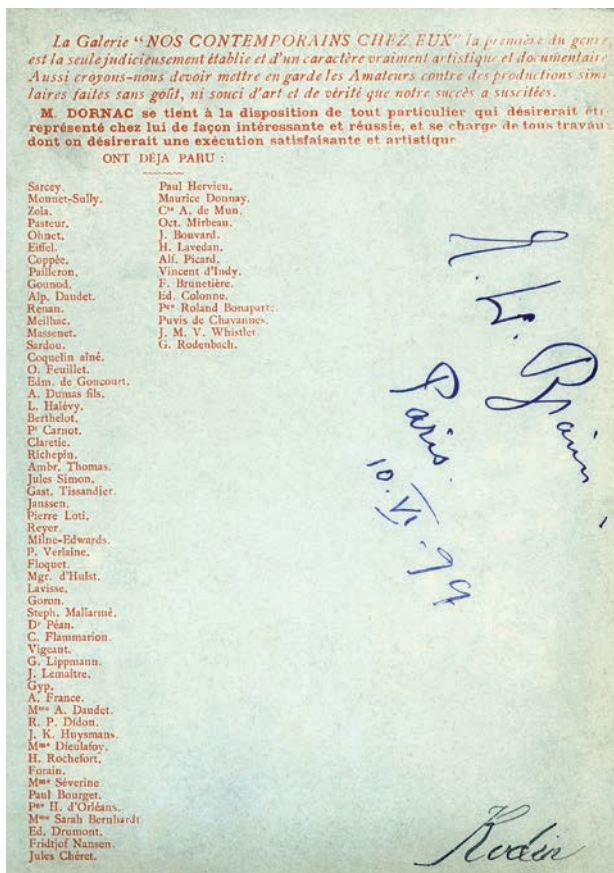 La Galerie "NOS CONTEMPORAINS CHEZ EUX" la première du genre
est la seule judicieusement établie et d'un caractère vraiment artistique et documentaire
Aussi croyons-nous devoir mettre en garde les Amateurs contre des productions simi
laires faites sans goût, ni souci d'art et de vérité que notre succès a suscitées.
M. DORNAC se tient à la disposition de tout particulier qui désirerait être
représenté chez lui de façon intéressante et réussie, et se charge de tous travaux
dont on désirerait une exécution satisfaisante et artistique
ONT DÉJA PARU :
Sarcey.
Mounet-Sully.
Zola.
Pasteur.
Ohnet.
Eiffel.
Coppée.
Pailleron.
Gounod.
Alp. Daudet.
Renan.
Meilhac.
Massenet.
Sardou.
Coquelin aîné.
O. Feuillet.
Edm. de Goncourt.
A. Dumas fils.
L. Halévy.
Berthelot.
Pt Carnot.
Claretie.
Richepin.
Ambr. Thomas.
Jules Simon.
Gast. Tissandier.
Janssen.
Pierre Loti.
Reyer.
Milne-Edwards.
P. Verlaine.
Floquet.
Mgr. d'Hulst.
Lavisse.
Goron.
Steph. Mallarmé.
Dr Péan.
C. Flammarion.
Vigeant.
G. Lippmann.
J. Lemaître.
Gyp.
A. France.
Mme A. Daudet.
R. P. Didon.
J. K. Huysmans.
Mme Dieulafoy.
H. Rochefort.
Forain.
Mme Séverine
Paul Bourget.
Pce H. d'Orléans.
Mme Sarah Bernhardt
Ed. Drumont.
Fridtjof Nansen.
Jules Chéret.
Paul Hervieu.
Maurice Donnay.
Cte A. de Mun.
Oct. Mirbeau.
J. Bouvard.
H. Lavedan.
Alf. Picard.
Vincent d'Indy.
F. Brunetière.
Ed. Colonne.
Pce Roland Bonaparte.
Puvis de Chavannes.
J. M. V. Whistler.
G. Rodenbach.
Paris.
10.VI.99
Rodin